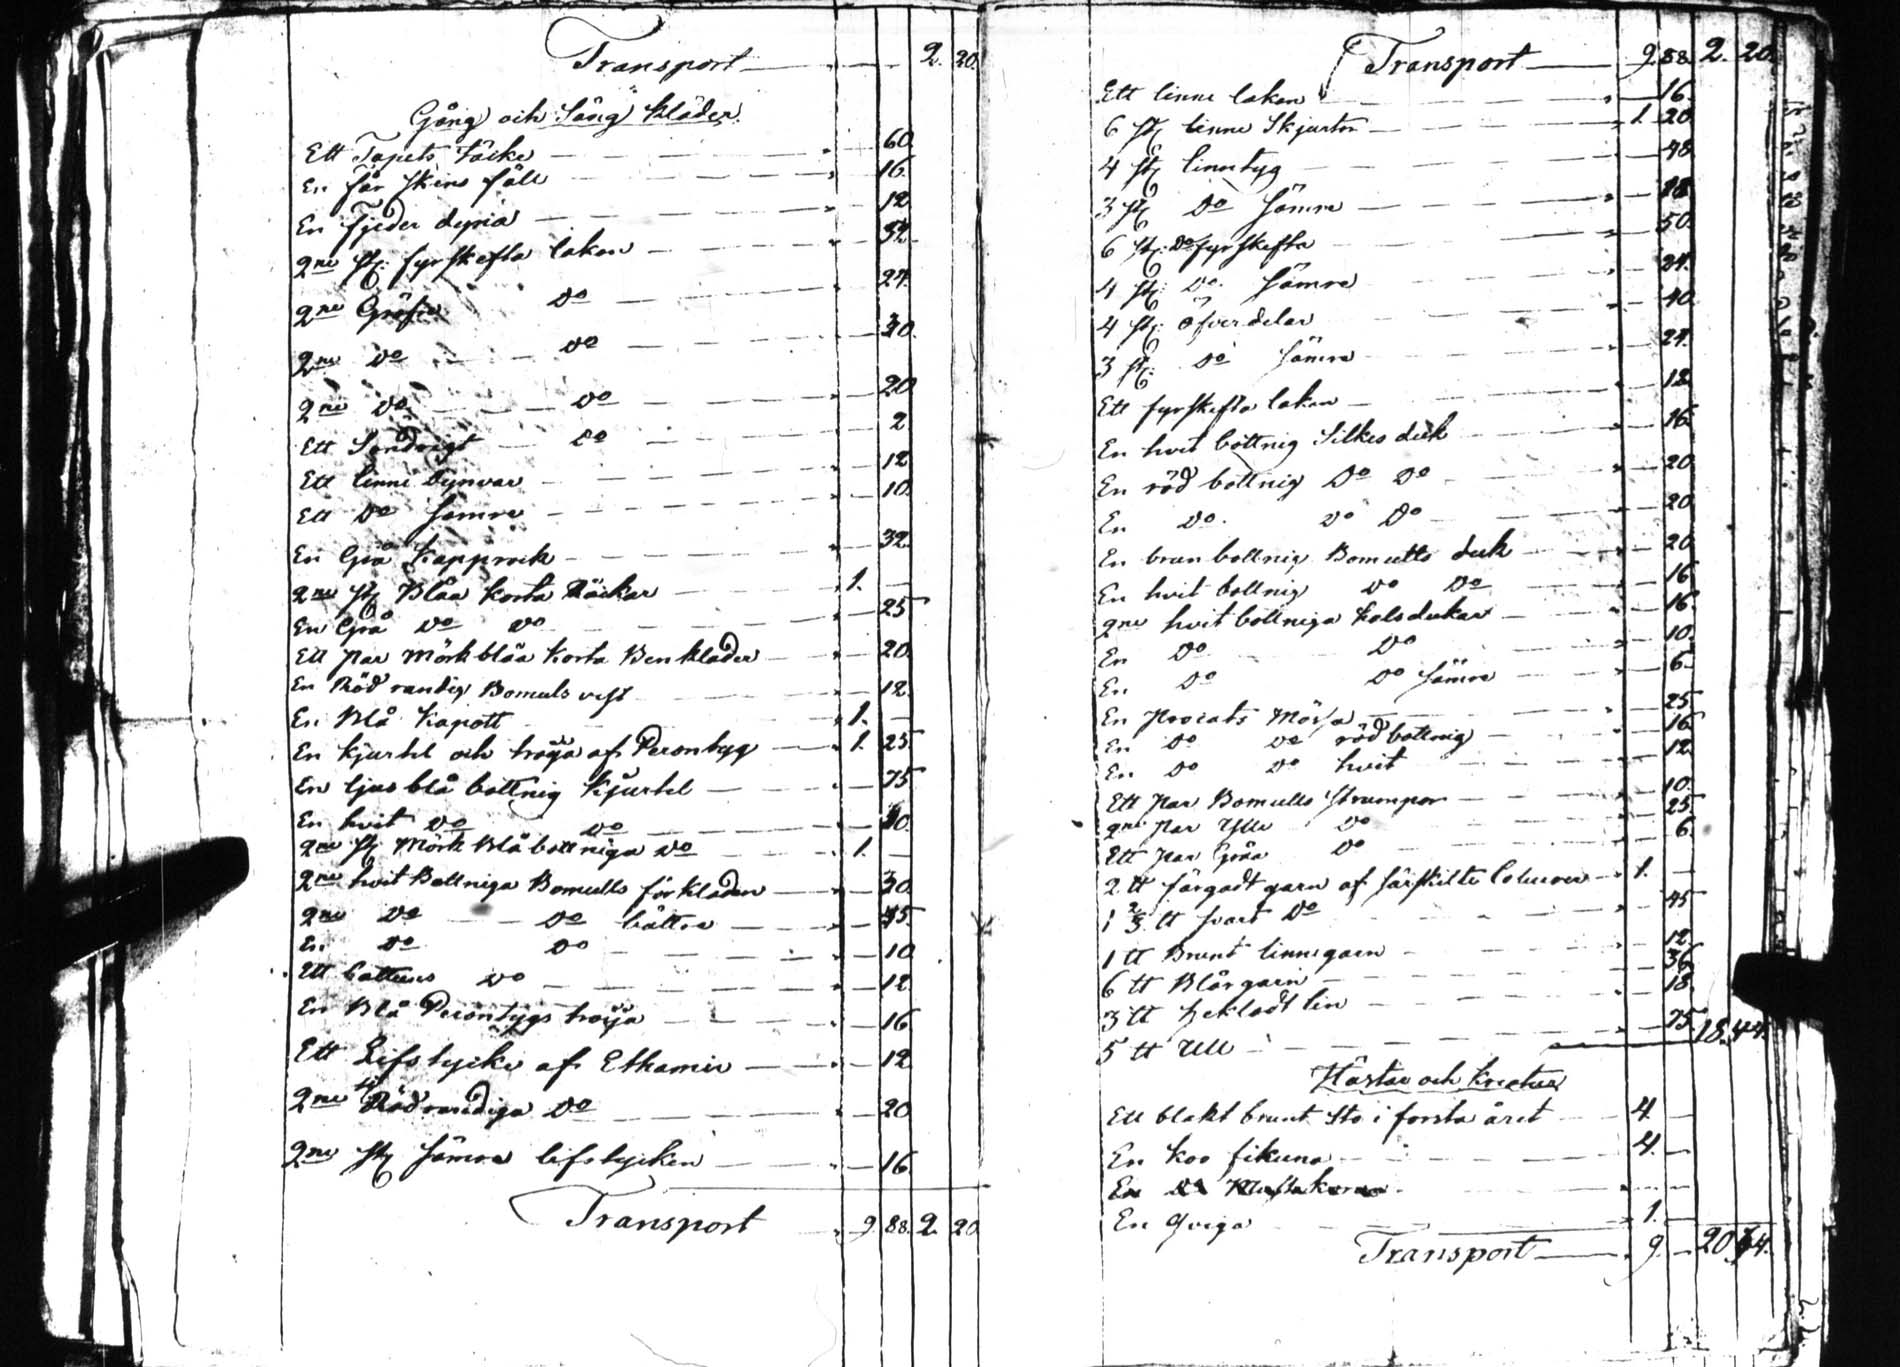 Transport 2. 20.
Gång och Säng kläder
Ett Tapets täcke 60.
En får skins fäll 16.
En Fjeder dyna 12
2ne st. fyrskefta lakan 32.
2ne Gröfre Do 24.
2ne Do Do 30.
2ne Do Do 20
Ett Söndrigt Do 2
Ett linne dynvar 12
Ett Do sämre 10.
En Grå Kapprock 32.
2ne st. Blåa korta Röckar 1. —
En Grå Do Do 25
Ett par mörkblåa korta Benkläder 20.
En Röd randig Bomuls vest 12.
En Blå Kapott 1. —
En kjortel och tröja af Peronbyg 1. 25.
En ljusblå bottnig kjortel 75
En hvit Do Do
2ne st. Mörk Blå bottniga Do 1. —
2ne hvit Bottniga Bomulls förkläden 30.
2ne Do Do bättre 45
En Do Do 10
Ett Cattuns Do 12.
En Blå Peronbygs tröja 16
Ett Lifstycke af Ethamin 12
2ne st Röd randiga Do 20
2ne st. sämre lifstycken 16
Transport 9. 88. 2. 20.
Transport 9. 88. 2. 20.
Ett linne lakan 16.
6 st. linne Skjortor 1. 20.
4 st. linntyg 48.
3 st. Do sämre 18.
6 st. Do fyrskefta 50.
4 st. Do. sämre 24.
4 st. öfverdelar 40.
3 st. Do sämre 24.
Ett fyrskefta lakan 12
En hvit bottnig Silkes duk 16.
En röd bottnig Do Do 20
En Do. Do Do 20
En brun bottnig Bomulls duk 20
En hvit bottnig Do Do 16
2ne hvit bottniga halsdukar 16.
En Do Do 10.
En Do Do sämre 6.
En Procats Mössa 25
En Do Do röd bottnig 16
En Do Do hvit 12.
Ett par Bomulls strumpor 10.
2ne par Ulle Do 25
Ett par Gråa Do 6.
2 tt färgadt garn af särskilte Coleurer 1. —
1 2/3 tt svart Do 45
1 tt Brunt linnegarn 12
6 tt Blårgarn 36
3 tt hekladt lin 18.
5 tt Ull 75 18. 44.
Hästar och Kreatur
Ett blakt brunt Sto i första året 4. —
En koo 4. —
En Do
En Qviga 1. —
Transport 9. — 20.